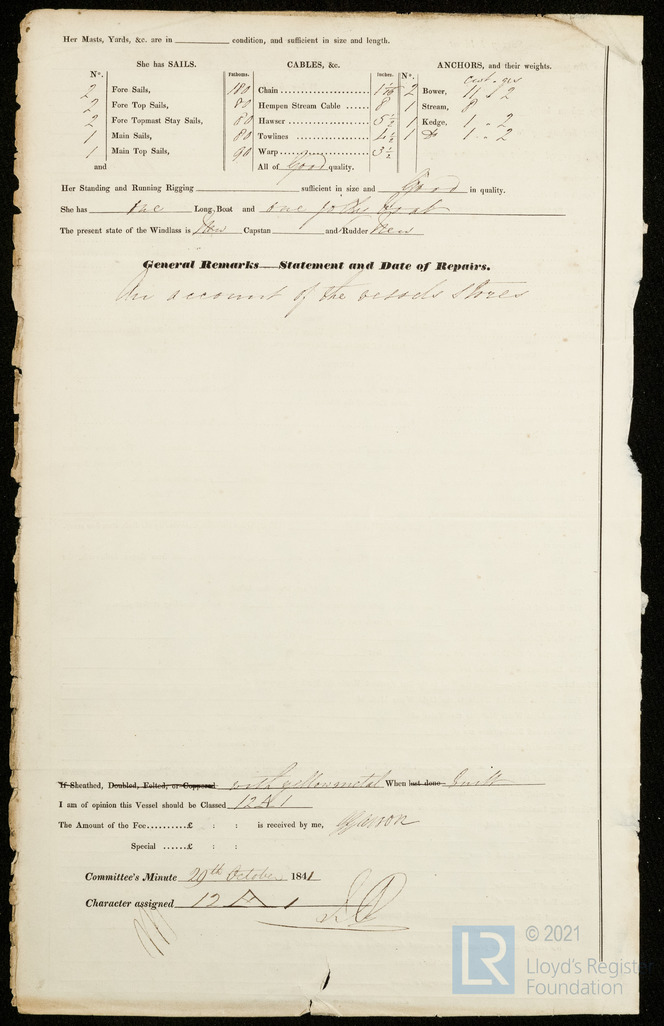 Her Masts, Yards, &c. are in ________ condition, and sufficient in size and length.
She has SAILS. CABLES, &c. ANCHORS, and their weights.
N°. Fathoms. Inches. N°. cwt. qrs
2 Fore Sails, 180 Chain 1 1/16 2 Bower, 11 - 2
2 Fore Top Sails, 80 Hempen Stream Cable 8 1 Stream, 8
2 Fore Topmast Stay Sails, 80 Hawser 5 1/2 1 Kedge, 1 - 2
1 Main Sails, 80 Towlines 4 1/2 1 Do 1 - 2
1 Main Top Sails, 90 Warp 3 1/2
and All of Good quality.
Her Standing and Running Rigging ________ sufficient in size and Good in quality.
She has one Long Boat and one jolly Boat
The present state of the Windlass is New Capstan ________ and Rudder New
General Remarks—Statement and Date of Repairs.
An account of the vessels stores
If Sheathed, Doubled, Felted, or Coppered with yellow metal When last done built
I am of opinion this Vessel should be Classed 12 A 1
The Amount of the Fee..........£ : : is received by me,
Special ......£ : :
Committee's Minute 29th October 1841
Character assigned 12 A 1
LR © 2021
Lloyd's Register
Foundation